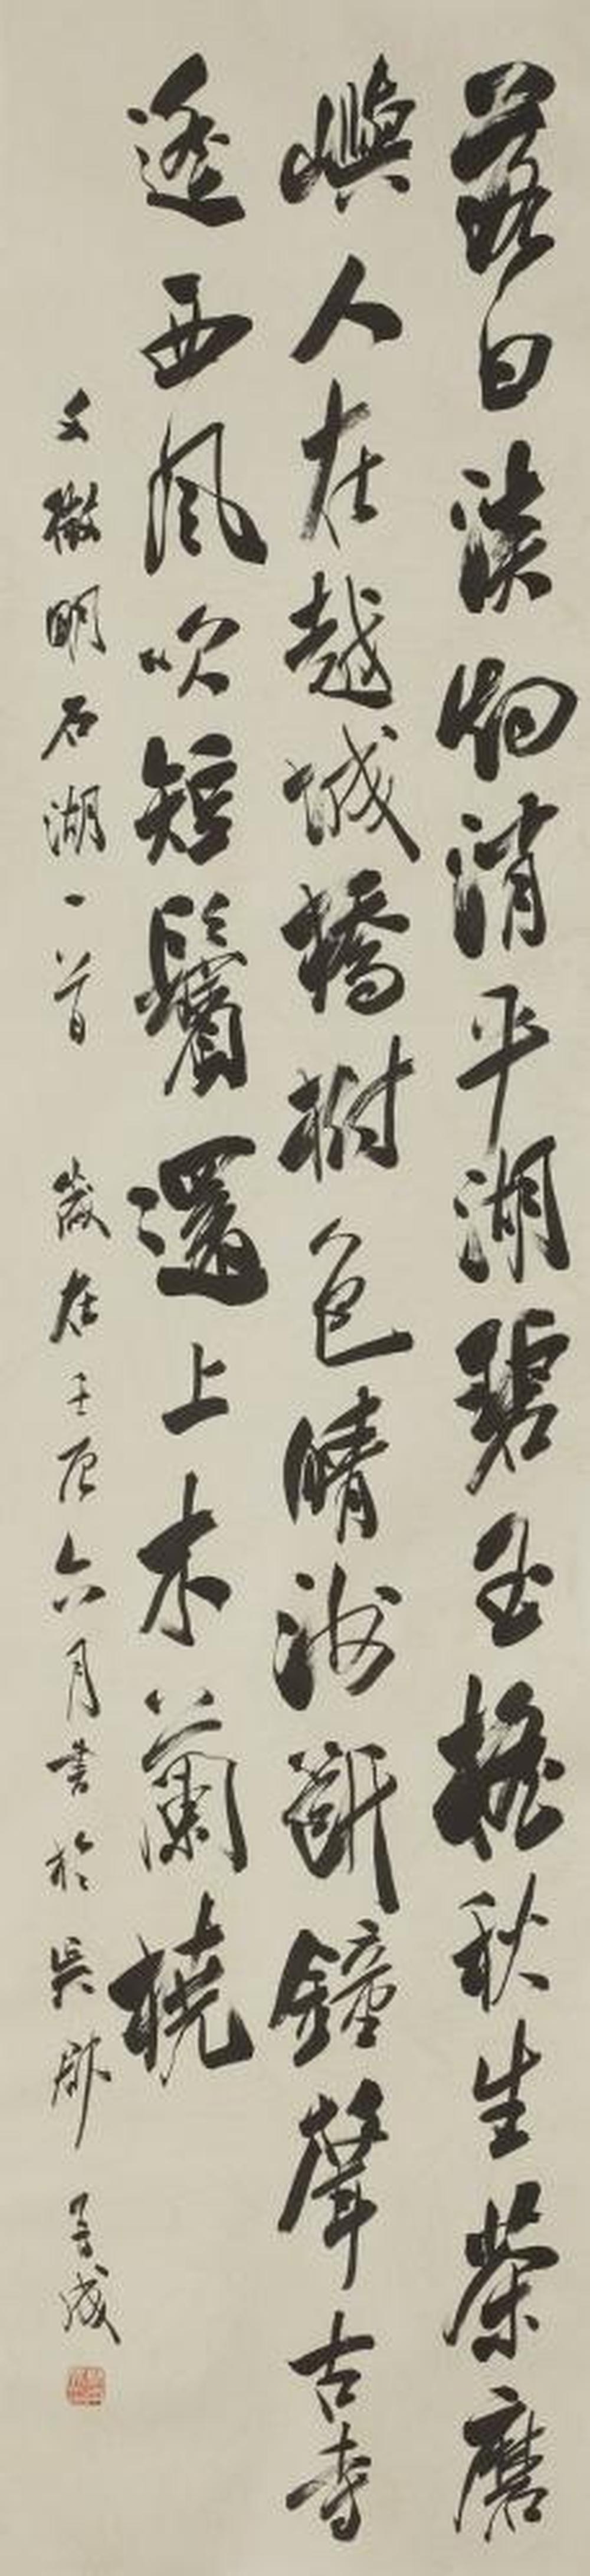 落日淡烟消平湖碧玉摇秋生茶磨
嶼人在越城橋樹色晴洲斷鐘聲古寺
遙西風吹短鬢還上木蘭橈
文徵明石湖一首 歲在壬辰六月書於吳郡